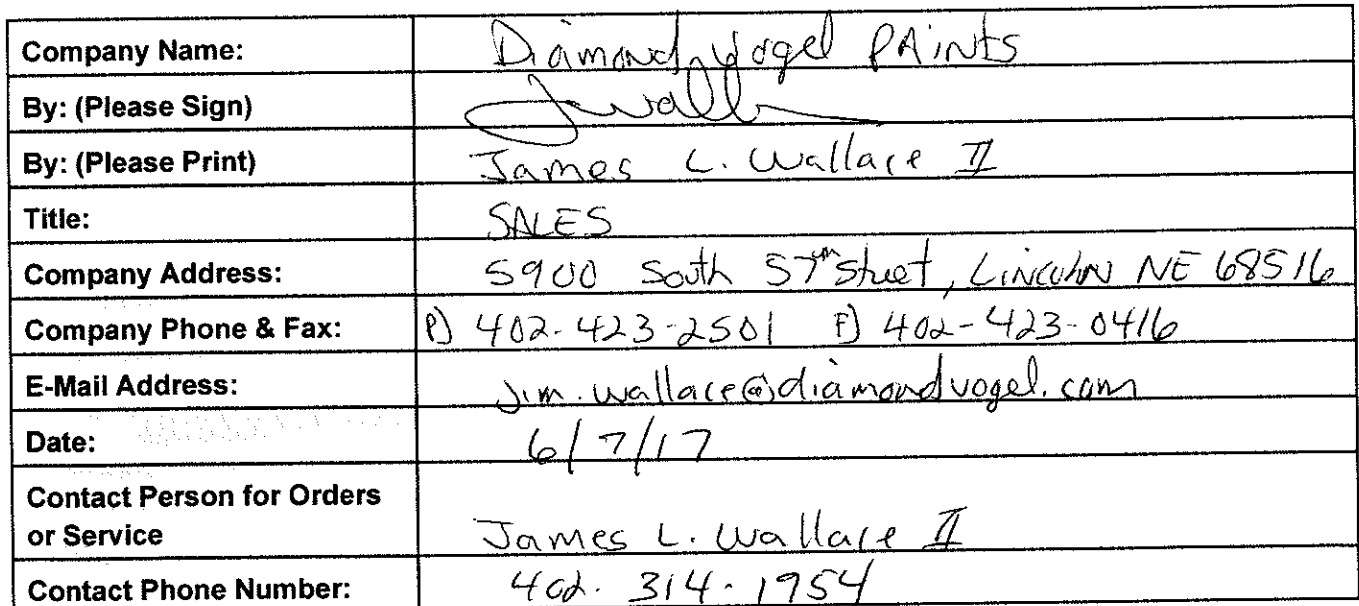 Company Name: Diamond Vogel PAiNtS
By: (Please Sign) Jwall
By: (Please Print) James L. Wallace II
Title: SALES
Company Address: 5900 South 57th Street, LINCOLN NE 68516
Company Phone & Fax: P) 402-423-2501 F) 402-423-0416
E-Mail Address: Jim.wallace@diamondvogel.com
Date: 6/7/17
Contact Person for Orders
or Service James L. Wallace II
Contact Phone Number: 402. 314. 1954